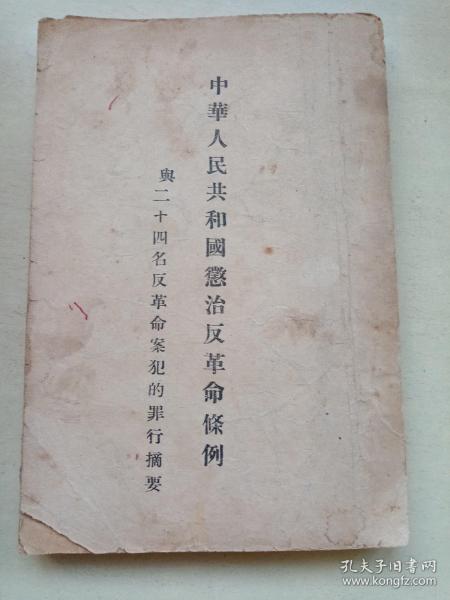 中華人民共和國懲治反革命條例
與二十四名反革命案犯的罪行摘要
孔夫子旧书网
www.kongfz.com